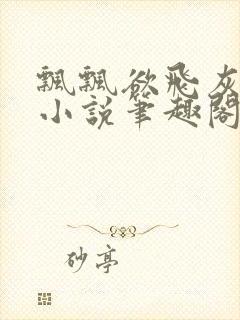 飄飄欲飛灰
小說筆趣閣
砂亭